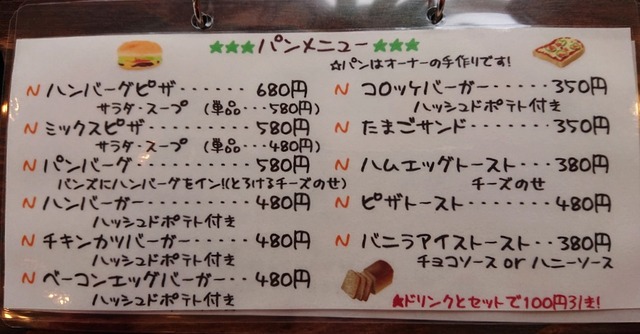 ★★★パンメニュー★★★
☆パンはオーナーの手作りです!
N ハンバーグピザ・・・・・・・680円
サラダ・スープ (単品・・・580円)
N ミックスピザ・・・・・・・・580円
サラダ・スープ (単品・・・480円)
N パンバーグ・・・・・・・・・580円
バンズにハンバーグをイン!(とろけるチーズのせ)
N ハンバーガー・・・・・・・・480円
ハッシュドポテト付き
N チキンカツバーガー・・・・・480円
ハッシュドポテト付き
N ベーコンエッグバーガー・・480円
ハッシュドポテト付き
N コロッケバーガー・・・・350円
ハッシュドポテト付き
N たまごサンド・・・・・・・350円
N ハムエッグトースト・・・380円
チーズのせ
N ピザトースト・・・・・・480円
N バニラアイストースト・・380円
チョコソース or ハニーソース
★ドリンクとセットで100円引き!